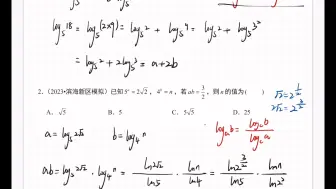 log₅18 = log₅(2×9) = log₅2 + log₅9 = log₅2 + log₅3²
= log₅2 + 2log₅3 = a+2b
2.(2023•滨海新区模拟)已知5ᵃ = 2√2,4ᵇ = n,若ab = 3/2,则n的值为( )
√2 = 2^(1/2)
2√2 = 2^(3/2)
A.√5 B.5 C.5√5 D.25
a = log₅2√2 b = log₄n
logₐb = log_c b / log_c a
ab = log₅2√2 · log₄n = ln2√2/ln5 · lnn/ln4 = ln2^(3/2)/ln5 · lnn/ln2²